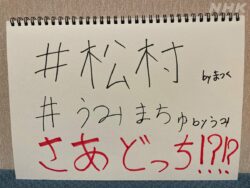 NHK
#松村
byまつく
#うみまちゅbyうみ
さあどっち!?!?